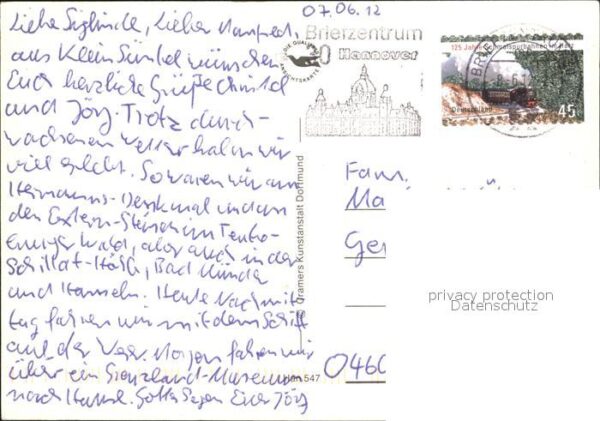 07.06.12
Liebe Sieglinde, lieber Manfred,
aus Klein Süntel wünschen
Euch herzliche Grüße Christel
und Jörg. Trotz durch-
wachsenen Wetter haben wir
viel erlebt. So waren wir am
Hermanns-Denkmal und an
den Extern-Steinen im Teuto-
burger Wald, aber auch in der
Schillat-Höhle, Bad Münder
und Hameln. Heute Nachmit
tag fahren wir mit dem Schiff
auf der Weser. Morgen fahren wir
über ein Grenzland-Museum
nach Hause. Gottes Segen Euer Jörg
Briefzentrum
30
Hannover
DIE QUALITÄTS
ANSICHTSKARTE
125 Jahre Schmalspurbahnen im Harz
Deutschland
45
Cramers Kunstanstalt Dortmund
547
Fam.
Ma
Ge
0460
privacy protection
Datenschutz